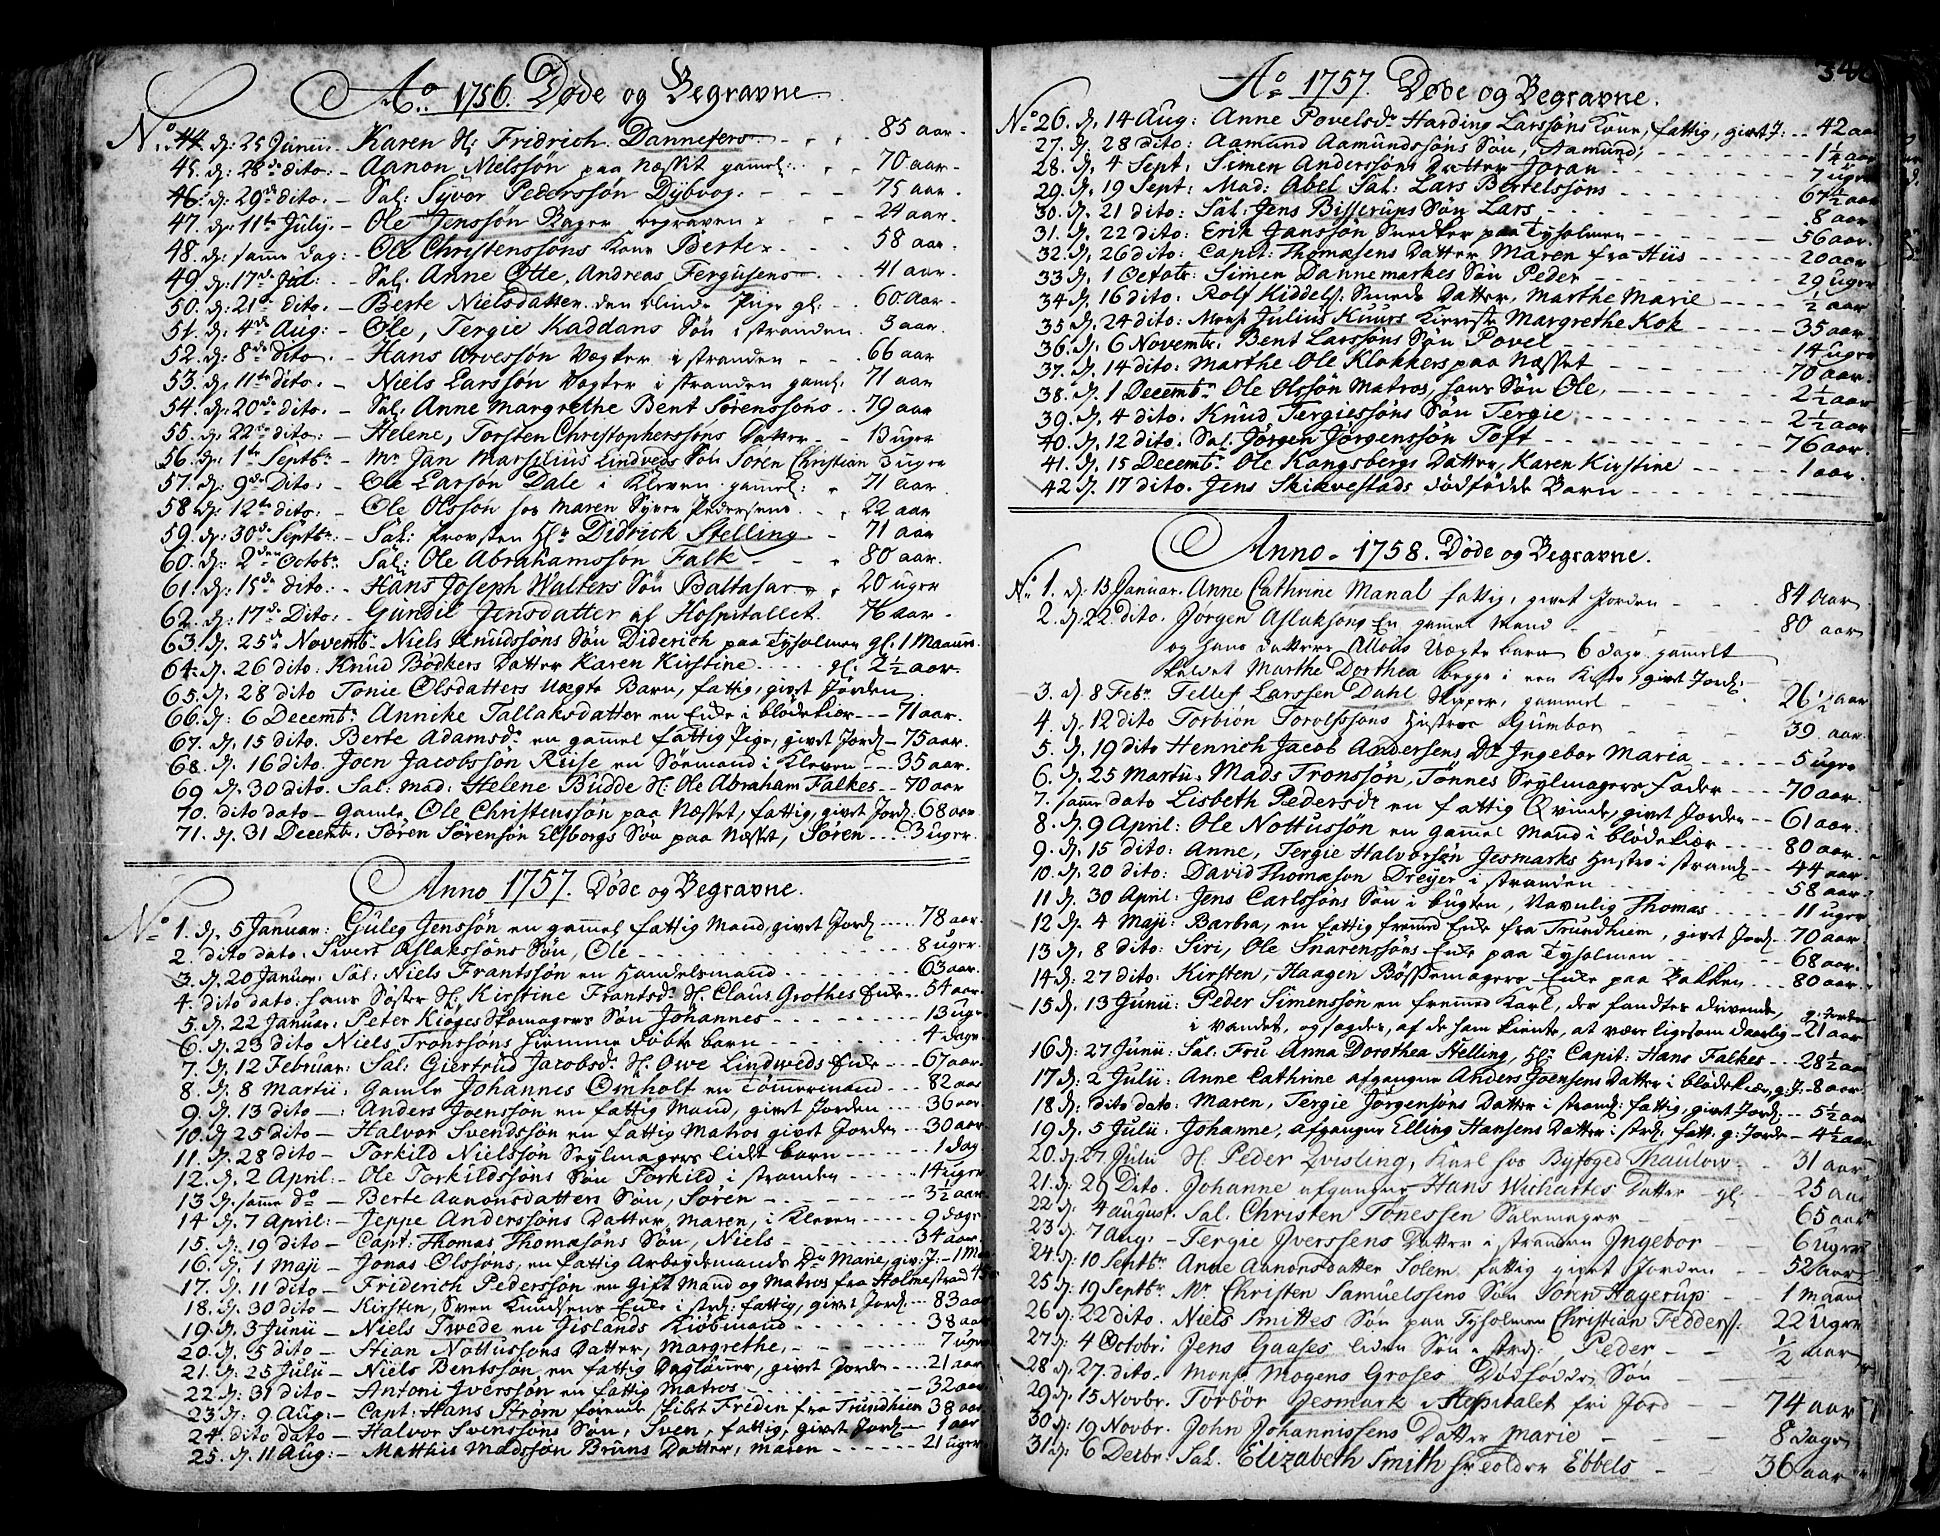 Ao. 1756. Døde og Begravne.
No. 44. d. 25 Junii - Karen H. Fridrich Dannefers - - 85 aar.
45. d. 28de dito: - Aanon Nielssøn paa Næsset gammel: - 70 aar.
46. d. 29de dito. - Sal: Syvor Pederssøn Dybvog - - - 75 aar.
47. d. 11te July. - Ole Jenssøn begraven - - 24 aar.
48. d. samme dag: - Ole Christenssøns Kone Berte - - 58 aar.
49. d. 17de Jul: - Sal. Anne Otte, Andreas Fergusens - 41 aar.
50. d. 21de dito: - Berte Nielsdatter den blinde Pige gl: - 60 Aar.
51. d. 4de Aug: - Ole, Tergie Kaddans Søn i stranden. 3 aar.
52. d. 8de dito. - Hans Arvessøn Vægter i stranden - - 66 aar
53. d. 11te dito. - Niels Larssøn Vægter i stranden gaml: 71 aar
54. d. 20de dito. - Sal: Anne Margrethe Bent Sørenssøns . . 79 aar
55. d. 22de dito: - Helene, Torsten Christopherssøns Datter - - 13 uger
56. d. 1te Septbr - Mr Jan Marsilius Lindveds Søn Søren Christian 3 uger
57. d. 9de Dito: - Ole Larsøn Dale i Kleven gammel: - 71 aar
58. d. 12te dito: - Ole Olssøn hos Maren Syver Pedersens - 22 aar
59. d. 30de Septbr. - Sal: Provsten Hr Didrick Stelling - - 71 aar
60. d. 2den Octobr. Sal: Ole Abrahamssøn Falk - - 80 aar.
61. d. 15de dito. - Hans Joseph Walters Søn Baltasar - 20 uger
62. d. 17de Dito: - Gundil Jensdatter af Hospitallet. 76 aar -
63. d. 25de Novemb. Niels Knudssøns Søn Diderich paa Tyholmen gl. 1 Maaned.
64. d. 26 dito: Knud Bødkers Datter Karen Kirstine . . . . gl: 2½ aar.
65. d. 28 dito Tonie Olsdatters Uægte Barn, fattig, givet Jorden.
66. d: 6 Decembr. Annike Tallaksdatter en Enke i blødekiær - - - 71 aar.
67. d. 15 dito. Berte Adamsdr. en gammel fattig Pige, givet Jord - 75 aar.
68. d. 16 dito. Joen Jacobssøn Ruse en Sørmand i Kleven - - - 35 aar.
69 d. 30 dito. Sal: Mad: Helene Budde H: Ole Abraham Falkes - - 70 aar
70. dito dato - Gamle Ole Christenssøn paa Næsset, fattig, givet Jord: 68 aar
71. d. 31 Decemb. Søren Sørensøn Elsborgs Søn paa Næsset, Søren . . . 3 uger.
Anno 1757. Døde og Begravne.
No. 1. d. 5 Januar: Guleg Jenssøn en gammel fattig Mand, givet Jord . . . . 78 aar.
2. dito dato: Sivert Aslakssøns Søn, Ole . . . . . 8 uger.
3. d. 20 Januar: Sal: Niels Frantssøn en Handelsmand . . . . 63 aar.
4. dito dato: hans Søster H: Kirstine Frantsdr. H. Claus Grothes Enke - 54 aar.
5. d. 22 Januar: Peter Kiøges Skomagers Søn Johannes - - - - 13 uger
6. d. 23 dito Niels Tronssøns hiemme døbte barn - - - - 4 dage.
7. d. 12 Februar: Sal: Giertrud Jacobsdr. H. Owe Lindweds Enke - - 67 aar.
8. d. 8 Martii: Gamle Johannes Omholt en Tømmermand - - - - 82 aar
9. d. 13 dito -: Anders Joenssøn en fattig Mand, givet Jorden - - - 36 aar
10. d. 25 dito - Halvor Svendssøn en fattig Matros givet Jorden - - - 30 aar
11. d. 28 dito - Torkild Nielssøn Seylmagers lidet barn - - - - 1 dag
12. d. 2 April: - Ole Torkildssøns Søn Torkild i stranden - - - - 14 uger
13. d. samme do - Berte Aanonsdatters Søn, Søren - - - - 3½ aar
14 d. 7 April: - Jeppe Anderssøns Datter Maren, i Kleven - - - 9 dage
15. d. 19 dito - Capt: Thomas Thomasøns Søn, Niels - - - - 34 aar
16. d. 1 Maji - Jonas Olssøns, en fattig Arbeydsmands Dr Marie, giv: J. - 1 Maa
17. d. 11 dito - Friderich Pederssøn en gift Mand og Matros fra Holmestrad 45
18. d. 30 dito - Kirsten, Sven Knudsens Enke i strd: fattig, givet Jord. - - 83 aar
19. d. 3 Junii - Niels Twede en Jislands Kiøbmand - - - - 38 aar
20. d. 5 dito - Stian Nottussøns Datter, Margrethe - - - - 7 uger
21. d. 25 Julii - Niels Bentssøn, en fattig Dagløner, givet Jorden - - - 21 aar
22. d. 31 dito - Antoni Iverssøn en fattig Matros - - - - 32 aar
23. d. 9 Aug: - Capt: Hans Strøm førende skibet Freden fra Trundhiem 38 aar
24. dito dato - Halvor Svenssøns Søn, Sven, fattig, givet Jord - - 1 aar
25. d. 11 Aug: - Matthis Madssøn Bruns Datter, Maren - - - - 21 uger
Ao 1757. Døde og Begravne.
No. 26. d. 14 Aug: Anne Povelsdr. Harding Larssøns Kone, fattig, givet J: - - 42 aar
27. d. 28 dito: Aamund Aamundssøns Søn, Aamund, - - - - 1¼ aar
28. d. 4 Sept: Simen Anderssøns Datter Joran - - - - 7 uger
29. d. 19 Sept: Mad: Abel Sal: Lars Bertelssøns - - - - 67½ aar
30. d. 21 dito: Sal. Jens Bisserups Søn Lars - - - - 8 aar
31. d. 22 dito: Erik Janssøn Snedker paa Tyholmen - - - 56 aar.
32. d. 26 dito: Capit: Thomasens Datter Maren fra Hiis - - - 20 aar
33. d. 1 Octobr: Simen Dannemarkes Søn Peder - - - - 29 uger
34. d. 16 dito: Rolf Kiddels: Smeds Datter, Marthe Marie - - - ½ aar
35. d. 24 dito: Mons. Julius Knurs Kiereste Margrethe Kok - - - 35 aar
36. d. 6 Novembr. Bent Larssøns Søn Povel - - - - 14 uger
37. d. 14 dito: Marthe Ole Klokkers paa Næsset - - - - 70 aar.
38. d. 1 Decembr. Ole Olssøn Matros, hans Søn Ole, - - - 2½ aar
39. d. 4 dito: Knud Tergiessøns Søn Tergie - - - - 2½ aar
40. d. 12 dito. Sal. Jørgen Jørgenssøn Toft - - - - 76 aar.
41. d. 15 Decembr. Ole Kangsbergs Datter, Karen Kirstine - - - 1 aar.
42 d. 17 dito. Jens Skikvestads dødfødde Barn - - - -
Anno. 1758. Døde og Begravne.
No. 1. d. 13 Januar. Anne Cathrine Manal fattig, givet Jorden - - - 84 Aar
2. d. 22 dito. Jørgen Aslaksøn En gammel Mand - - - 80 aar
og hans datters Uægte barn 6 dage gammelt
kaldet Marthe Dorthea begge i een Kiste givet Jord:
3. d. 8 Febr. Tellef Larssen Dahl Skipper, gammel - - - 26½ aar
4. d. 12 dito Torbiøn Torolfssøns Hustroe Gumbor - - - 39. aar.
5. d. 19 dito Henrich Jacob Andersens Dr Ingebor Maria - - - 5 uger
6. d. 25 Martii. Mads Tronssøn, Tønnes Seylmagers Fader - - - 70 aar.
7. samme dato Lisbeth Pedersdr en fattig Qvinde, givet Jorden - - 61 aar.
8. d. 9 April: Ole Nottussøn en gammel Mand i blødekiær - - - 80 aar.
9. d. 15 dito: Anne, Tergie Halvorsøn Jesmarks Hustro i strand. - - 44 aar.
10. d. 20 dito: David Thomasøn Dreyer i stranden - - - 58 aar.
11 d. 30 April: Jens Carlssøns Søn i bugten, Navnlig Thomas - - - 11 uger
12 d. 4 Maji: Barbra, en fattig fremmed Enke fra Trundhiem, givet Jord - 70 aar.
13 d. 8 dito: Siri, Ole Snarenssøns Enke paa Tyholmen - - - 68 aar.
14 d. 27 dito: Kirsten, Haagen Bøssemagers Enke paa Bakken - - - 80 aar.
15 d. 13 Junii: Peder Simenssøn en fremmed Karl, der fandtes drivende, g. Jorden
i Vandet, og sagdes, af de ham kiendte, at være ligesom daarlig - 21 aar
16 d: 27 Junii: Sal: Fru Anna Dorothea Stelling, Hr. Capit: Hans Falkes - - 28½ aar
17 d: 2 Julii: Anne Cathrine afgangne Anders Joensens Datter i blødekiær, g. J. - 8 aar
18 d: dito dato: Maren, Tergie Jørgensøns Datter i strand: fattig, givet Jord: - - 5½ aar
19 d. 5 Julii: Johanne, afgangne Elling Hansens Datter i strd. fatt. g. Jorden - 4½ aar
20. d. 27 Julii H. Peder Qvisling, Karl hos Byfoged Thaulow. - 31 aar
21. d: 29 Dito. Johanne afgangne Hans Wichartes Datter gl: - 25 aar
22 d. 4 august. Sal. Christen Tønessen Salemager - - - 65 aar
23 d. 7 aug: - Tergie Iverssens Datter i stranden Ingebor - - 6 uger
24. d: 10 Septbr Anne Aanonsdatter Solem fattig givet Jorden - - 52 aar
25 d: 19 Septbr. Mr. Christen Samuelssens Søn Søren Hagerup - - 1 maaned
26 d: 22 dito. Niels Smittes Søn paa Tyholmen Christian Fedders. 22 uger
27 d: 4 Octobr: Jens Gaases liden Søn i strd: Peder - - ½ aar
28 d. 27. dito: Mons. Mogens Groses Dødfødde Søn - -
29 d: 15 Novbr. Torbör Jesmark i Hospitalet fri Jord - - 74 aar
30 d: 19 Novbr. John Johannissens Datter Marie - - - 8 dage
31 d: 6 Decbr. Sal. Elizabeth Smith Sr Tolder Ebbels - - 36 aar